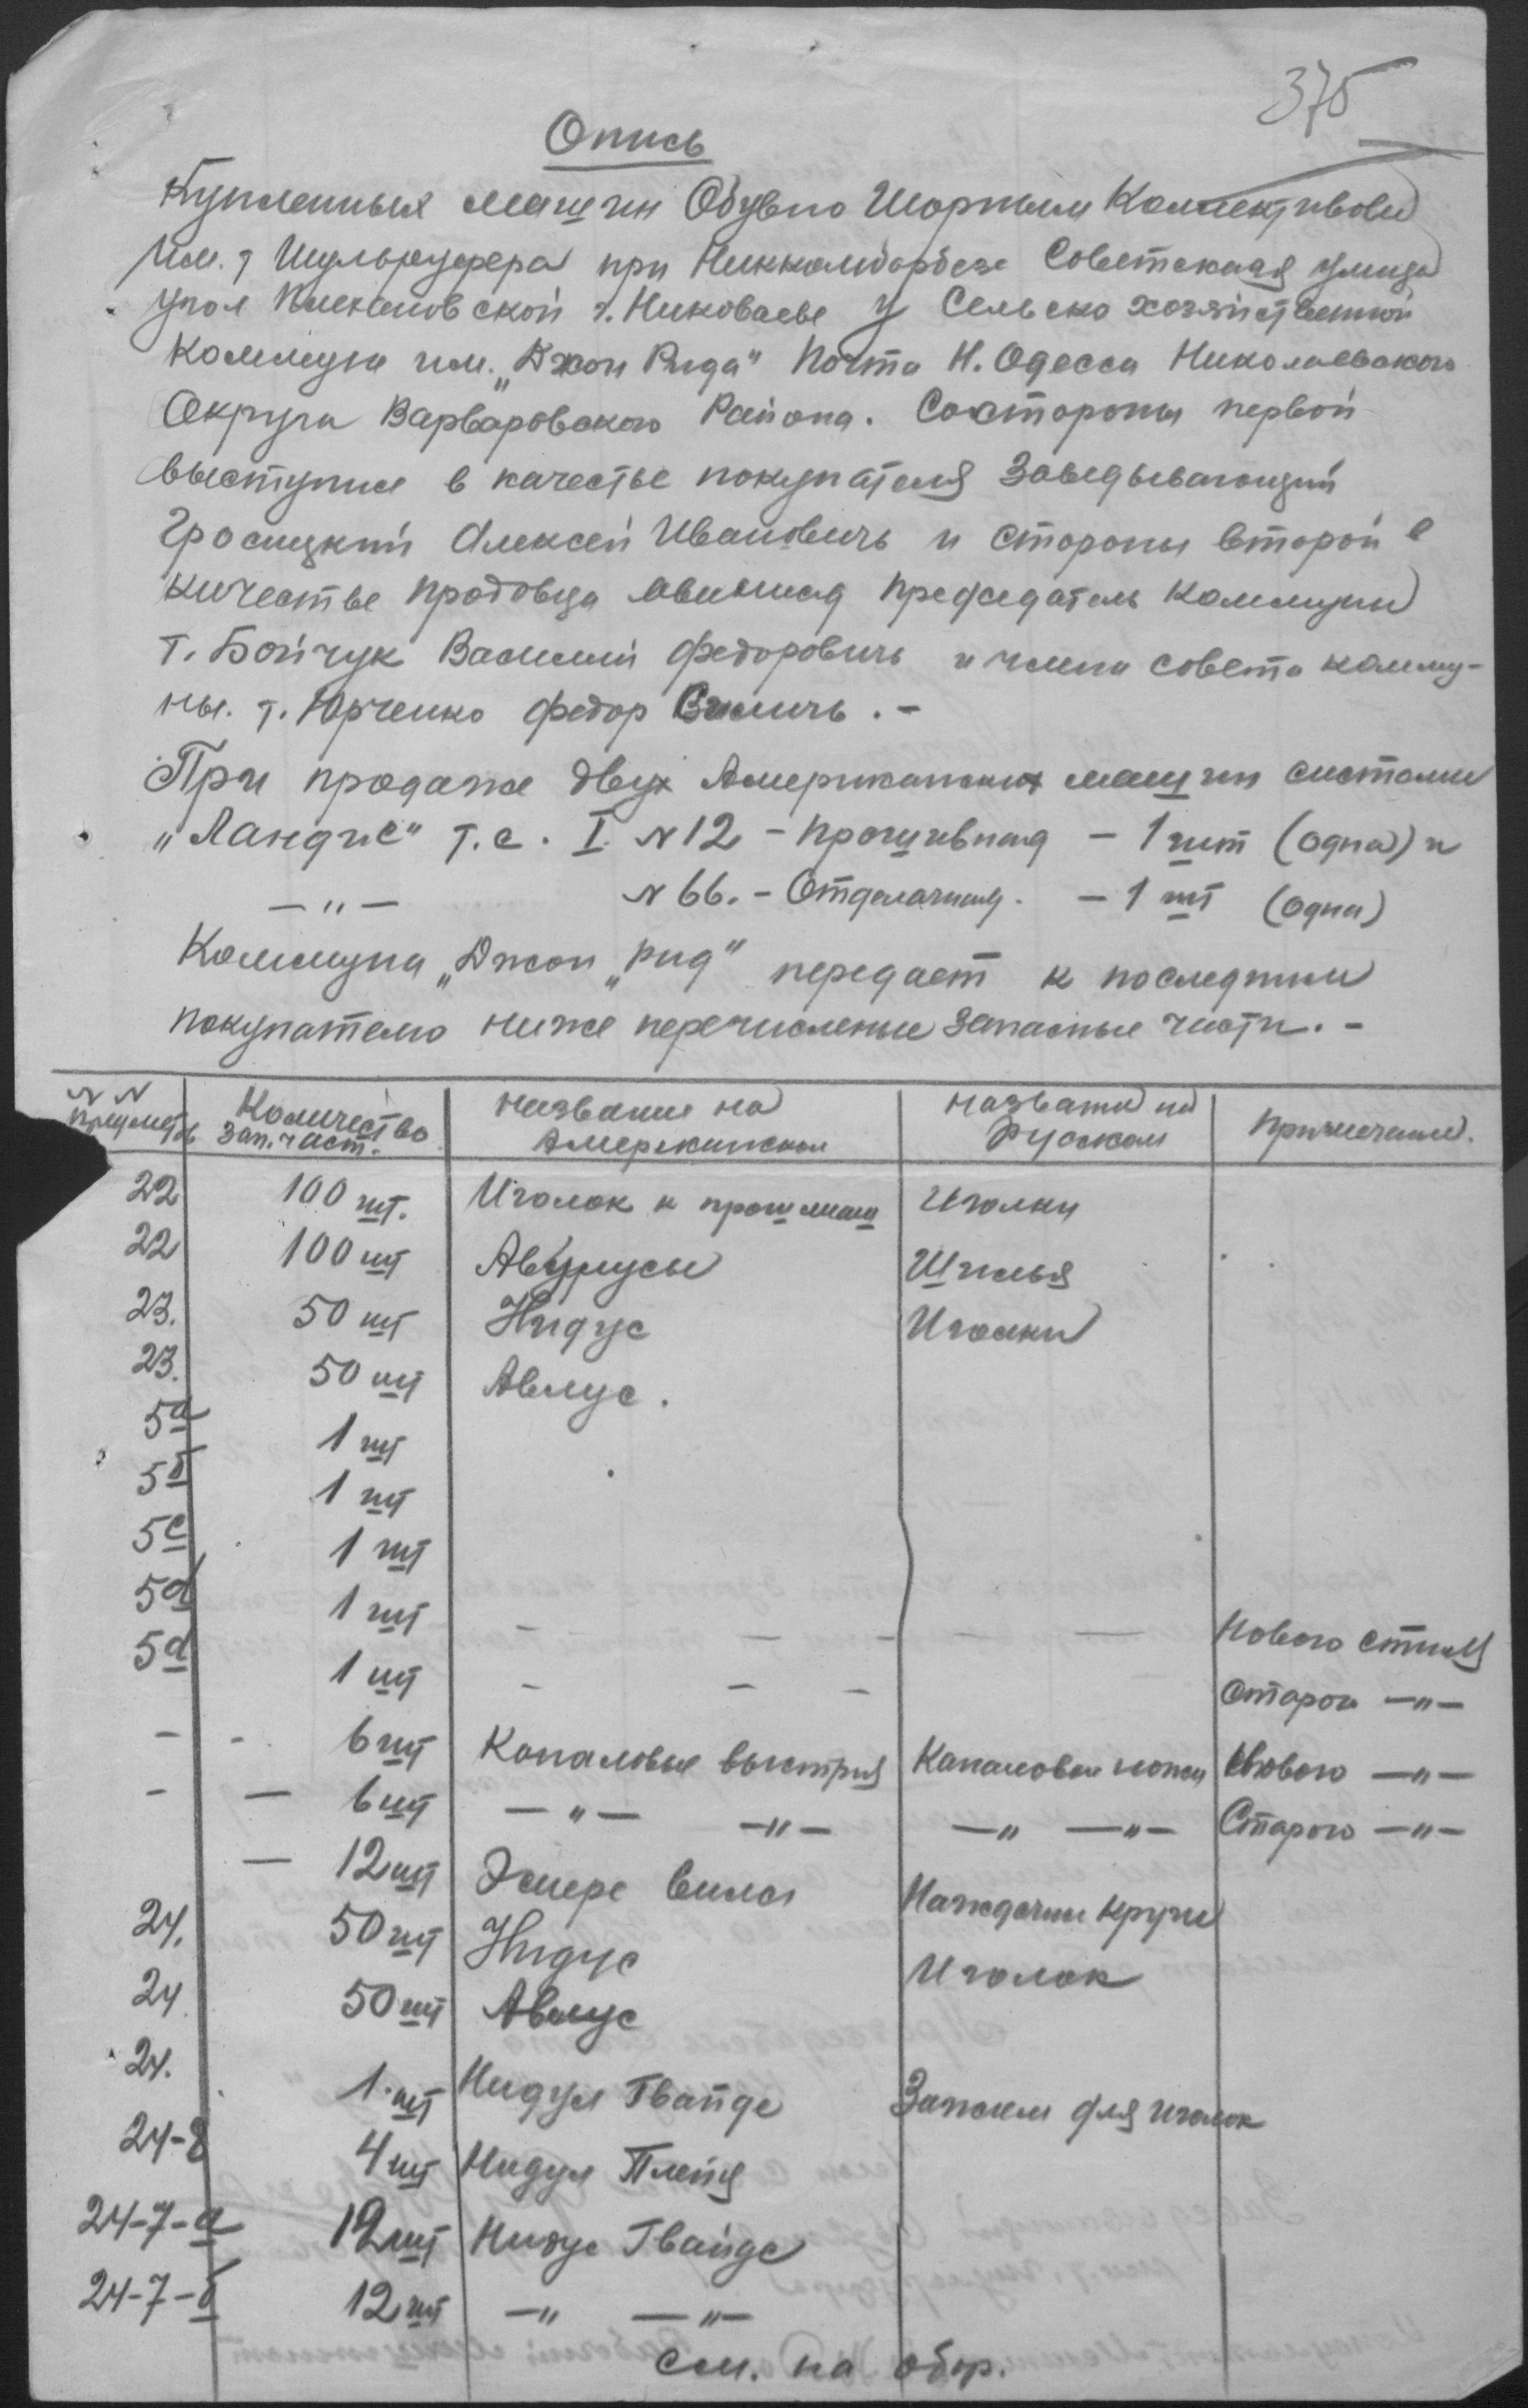 375
Опись
Купленныя машин Обувно Шорным Коллективом
Им. т Шульрууфера при Никкомборбезе Советская улица
угол г. Николаеве у Сельско хозяйственной
Коммуна им. „Джон Рида" Почта Н. Одесса Николаевского
Округа Варваровского Района. Состороны первой
выступил в качестве покупателя Заведывающий
Алексей Ивановичь и стороны второй в
качестве продовца председатель Коммуны
т. Бойчук Василий Федоровичь и члени совета комму-
ны. т. Юрченко Федор .-
При продаже двух Американских машин систами
„Ландис" т.с. I. N 12 - прошивная - 1 шт (одна) и
— " — N 66. - Отделачная. - 1 шт (одна)
Коммуна „Джон „Рид" передает к последним
покупателю ниже перечисленые запасные части. -
N N предметов Количество зап. част. Название на Американском Название на Руском Примечание.
22 100 шт. Иголок к прош маш Иголки
22 100 шт Шилья
23. 50 шт Нидус Иголки
23. 50 шт Авлус.
5а 1 шт
5б 1 шт
5с 1 шт
5d 1 шт - — - — — Нового стиля
5d 1 шт - - - Старого —"—
- - 6 шт Каналовые выстрия Каналовые ножи Нового —"—
- — 6 шт —"— —"— —" —"— Старого —"—
— 12 шт Эмере вилс Наждачни круги
24. 50 шт Нидус Иголок
24 50 шт Авлус
24. 1 шт Нидул Гвайде Зажим для иголок
24-8 4 шт Нидул Плейд
24-7-а 12 шт Нидус Гвайде
24-7-б 12 шт —" —"—
см. на обор.